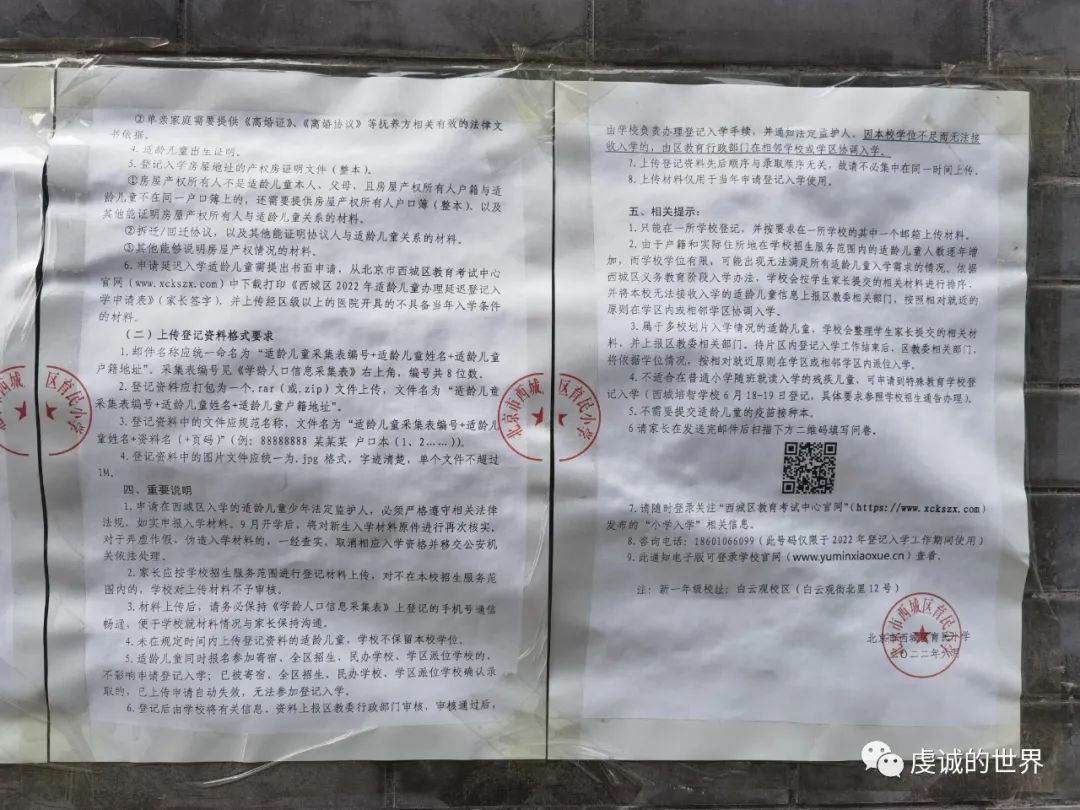 ②单亲家庭需要提供《离婚证》、《离婚协议》等抚养方相关有效的法律文
书依据。
4.适龄儿童出生证明。
5.登记入学房屋地址的产权房证明文件(整本)。
①房屋产权所有人不是适龄儿童本人、父母,且房屋产权所有人户籍与适
龄儿童不在同一户口簿上的,还需要提供房屋产权所有人户口簿(整本)、以及
其他能证明房屋产权所有人与适龄儿童关系的材料。
②拆迁/回迁协议,以及其他能证明协议人与适龄儿童关系的材料。
③其他能够说明房屋产权情况的材料。
6.申请延迟入学适龄儿童需提出书面申请,从北京市西城区教育考试中心
官网(www.xckszx.com)中下载打印《西城区2022年适龄儿童办理延迟登记入
学申请表》(家长签字),并上传经区级以上的医院开具的不具备当年入学条件
的材料。
(二)上传登记资料格式要求
1.邮件名称应统一命名为“适龄儿童采集表编号+适龄儿童姓名+适龄儿童
户籍地址”。采集表编号见《学龄人口信息采集表》右上角,编号共8位数。
2.登记资料应打包为一个.rar(或.zip)文件上传,文件名为“适龄儿童
采集表编号+适龄儿童姓名+适龄儿童户籍地址”。
3.登记资料中的文件应规范名称,文件名为“适龄儿童采集表编号+适龄儿
童姓名+资料名(+页码)”(例:88888888 某某某 户口本(1、2……))。
4.登记资料中的图片文件应统一为.jpg格式,字迹清楚,单个文件不超过
1M。
四、重要说明
1.申请在西城区入学的适龄儿童少年法定监护人,必须严格遵守相关法律
法规,如实申报入学材料。9月开学后,将对新生入学材料原件进行再次核实,
对于弄虚作假,伪造入学材料的,一经查实,取消相应入学资格并移交公安机
关依法处理。
2.家长应按学校招生服务范围进行登记材料上传,对不在本校招生服务范
围内的,学校对上传材料不予审核。
3.材料上传后,请务必保持《学龄人口信息采集表》上登记的手机号通信
畅通,便于学校就材料情况与家长保持沟通。
4.未在规定时间内上传登记资料的适龄儿童,学校不保留本校学位。
5.适龄儿童同时报名参加寄宿、全区招生、民办学校、学区派位学校的,
不影响申请登记入学;已被寄宿、全区招生、民办学校、学区派位学校确认录
取的,已上传申请自动失效,无法参加登记入学。
6.登记后由学校将有关信息、资料上报区教委行政部门审核,审核通过后,
由学校负责办理登记入学手续,并通知法定监护人,因本校学位不足而无法接
收入学的,由区教育行政部门在相邻学校或学区协调入学。
7.上传登记资料先后顺序与录取顺序无关,故请不必集中在同一时间上传。
8.上传材料仅用于当年申请登记入学使用。
五、相关提示:
1.只能在一所学校登记,并按要求在一所学校的其中一个邮箱上传材料。
2.由于户籍和实际住所地在学校招生服务范围内的适龄儿童人数逐年增
加,而学校学位有限,可能出现无法满足所有适龄儿童入学需求的情况。依据
西城区义务教育阶段入学办法,学校会按学生家长提交的相关材料进行排序,
并将本校无法接收入学的适龄儿童信息上报区教委相关部门,按照相对就近的
原则在学区内或相邻学区协调入学。
3.属于多校划片入学情况的适龄儿童,学校会整理学生家长提交的相关材
料,并上报区教委相关部门。待片区内登记入学工作结束后,区教委相关部门,
将依据学位情况,按相对就近原则在学区或相邻学区内派位入学。
4.不适合在普通小学随班就读入学的残疾儿童,可申请到特殊教育学校登
记入学(西城培智学校6月18-19日登记,具体要求参照学校招生通告办理)。
5.不需要提交适龄儿童的疫苗接种本。
6 请家长在发送完邮件后扫描下方二维码填写问卷。
7.请随时登录关注“西城区教育考试中心官网”(https://www.xckszx.com)
发布的“小学入学”相关信息。
8.咨询电话:18601066099(此号码仅限于2022年登记入学工作期间使用)
9.此通知电子版可登录学校官网(www.yuminxiaoxue.cn)查看。
注:新一年级校址:白云观校区(白云观街北里12号)
北京市西城区育民小学
二〇二二年六月
北京市西城区育民小学
虔诚的世界